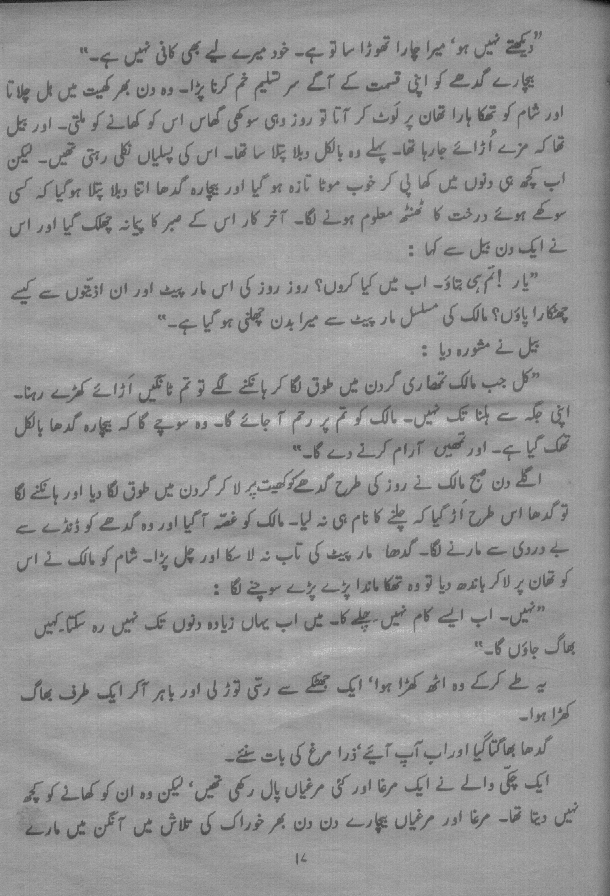 ”دیکھتے نہیں ہو، میرا چارا تھوڑا سا تو ہے۔ خود میرے لیے بھی کافی نہیں ہے۔“
بیچارے گدھے کو اپنی قسمت کے آگے سر تسلیم خم کرنا پڑا۔ وہ دن بھر کھیت میں ہل چلاتا
اور شام کو تھکا ہارا تھان پر لَوٹ کر آتا تو روز وہی سوکھی گھاس اس کو کھانے کو ملتی۔ اور بیل
تھا کہ مزے اُڑائے جارہا تھا۔ پہلے وہ بالکل دبلا پتلا سا تھا۔ اس کی پسلیاں نکلی رہتی تھیں۔ لیکن
اب کچھ ہی دنوں میں کھا پی کر خوب موٹا تازہ ہو گیا اور بیچارہ گدھا اتنا دبلا پتلا ہوگیا کہ کسی
سوکھے ہوئے درخت کا ٹھنٹھ معلوم ہونے لگا۔ آخر کار اس کے صبر کا پیمانہ چھلک گیا اور اس
نے ایک دن بیل سے کہا :
”یار ! تم ہی بتاؤ۔ اب میں کیا کروں؟ روز روز کی اس مار پیٹ اور ان اذیّتوں سے کیسے
چھٹکارا پاؤں؟ مالک کی مسلسل مار پیٹ سے میرا بدن چھلنی ہو گیا ہے۔“
بیل نے مشورہ دیا :
”کل جب مالک تمھاری گردن میں طوق لگا کر ہانکنے لگے تو تم ٹانگیں اَڑائے کھڑے رہنا۔
اپنی جگہ سے ہلنا تک نہیں۔ مالک کو تم پر رحم آ جائے گا۔ وہ سوچے گا کہ بیچارہ گدھا بالکل
تھک گیا ہے۔ اور تمھیں آرام کرنے دے گا۔“
اگلے دن صبح مالک نے روز کی طرح گدھے کو کھیت پر لا کر گردن میں طوق لگا دیا اور ہانکنے لگا
تو گدھا اس طرح اَڑ گیا کہ چلنے کا نام ہی نہ لیا۔ مالک کو غصّہ آگیا اور وہ گدھے کو ڈنڈے سے
بے دردی سے مارنے لگا۔ گدھا مار پیٹ کی تاب نہ لا سکا اور چل پڑا۔ شام کو مالک نے اس
کو تھان پر لا کر باندھ دیا تو وہ تھکا ماندا پڑے پڑے سوچنے لگا :
”نہیں۔ اب ایسے کام نہیں چلے گا۔ میں اب یہاں زیادہ دنوں تک نہیں رہ سکتا۔ کہیں
بھاگ جاؤں گا۔“
یہ طے کرکے وہ اٹھ کھڑا ہوا، ایک جھٹکے سے رسّی توڑ لی اور باہر آکر ایک طرف بھاگ
کھڑا ہوا۔
گدھا بھاگتا گیا اور اب آپ آیئے، ذرا مرغ کی بات سنیے۔
ایک چکّی والے نے ایک مرغا اور کئی مرغیاں پال رکھی تھیں، لیکن وہ ان کو کھانے کو کچھ
نہیں دیتا تھا۔ مرغا اور مرغیاں بیچارے دن دن بھر خوراک کی تلاش میں آنگن میں مارے
۱۷